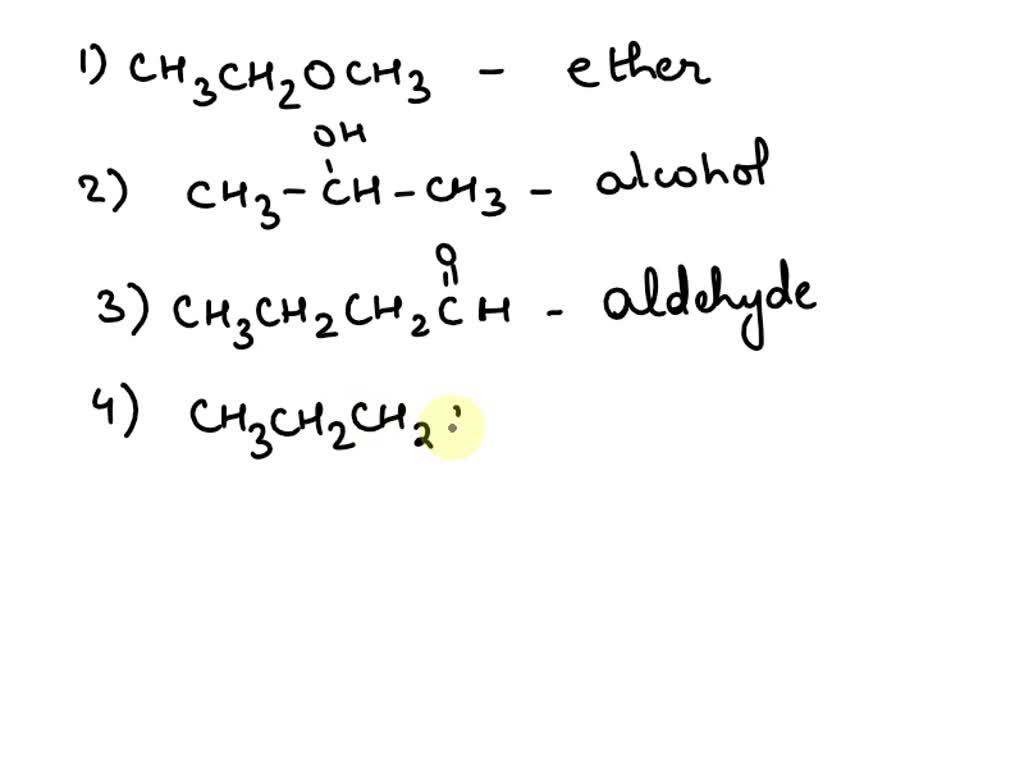 1) CH3CH2OCH3 - ether
OH
2) CH3-CH-CH3 - alcohol
O
3) CH3CH2CH2CH - aldehyde
4) CH3CH2CH2